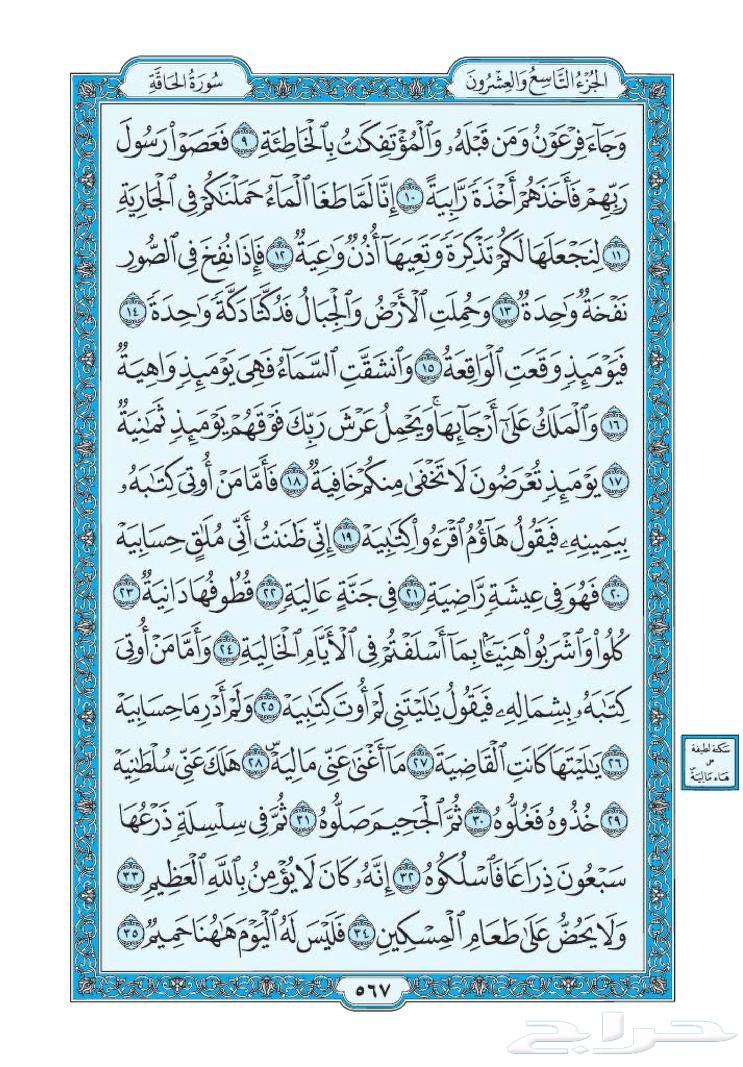 الجُزْءُ التَّاسِعُ وَالعِشْرُونَ
سُورَةُ الحَاقَّةِ
وَجَآءَ فِرْعَوْنُ وَمَن قَبْلَهُۥ وَٱلْمُؤْتَفِكَٰتُ بِٱلْخَاطِئَةِ ٩ فَعَصَوْا۟ رَسُولَ
رَبِّهِمْ فَأَخَذَهُمْ أَخْذَةً رَّابِيَةً ١٠ إِنَّا لَمَّا طَغَا ٱلْمَآءُ حَمَلْنَٰكُمْ فِى ٱلْجَارِيَةِ
١١ لِنَجْعَلَهَا لَكُمْ تَذْكِرَةً وَتَعِيَهَآ أُذُنٌ وَٰعِيَةٌ ١٢ فَإِذَا نُفِخَ فِى ٱلصُّورِ
نَفْخَةٌ وَٰحِدَةٌ ١٣ وَحُمِلَتِ ٱلْأَرْضُ وَٱلْجِبَالُ فَدُكَّتَا دَكَّةً وَٰحِدَةً ١٤
فَيَوْمَئِذٍ وَقَعَتِ ٱلْوَاقِعَةُ ١٥ وَٱنشَقَّتِ ٱلسَّمَآءُ فَهِىَ يَوْمَئِذٍ وَاهِيَةٌ
١٦ وَٱلْمَلَكُ عَلَىٰٓ أَرْجَآئِهَا ۚ وَيَحْمِلُ عَرْشَ رَبِّكَ فَوْقَهُمْ يَوْمَئِذٍ ثَمَٰنِيَةٌ
١٧ يَوْمَئِذٍ تُعْرَضُونَ لَا تَخْفَىٰ مِنكُمْ خَافِيَةٌ ١٨ فَأَمَّا مَنْ أُوتِىَ كِتَٰبَهُۥ
بِيَمِينِهِۦ فَيَقُولُ هَآؤُمُ ٱقْرَءُوا۟ كِتَٰبِيَهْ ١٩ إِنِّى ظَنَنتُ أَنِّى مُلَٰقٍ حِسَابِيَهْ
٢٠ فَهُوَ فِى عِيشَةٍ رَّاضِيَةٍ ٢١ فِى جَنَّةٍ عَالِيَةٍ ٢٢ قُطُوفُهَا دَانِيَةٌ ٢٣
كُلُوا۟ وَٱشْرَبُوا۟ هَنِيٓـًٔۢا بِمَآ أَسْلَفْتُمْ فِى ٱلْأَيَّامِ ٱلْخَالِيَةِ ٢٤ وَأَمَّا مَنْ أُوتِىَ
كِتَٰبَهُۥ بِشِمَالِهِۦ فَيَقُولُ يَٰلَيْتَنِى لَمْ أُوتَ كِتَٰبِيَهْ ٢٥ وَلَمْ أَدْرِ مَا حِسَابِيَهْ
٢٦ يَٰلَيْتَهَا كَانَتِ ٱلْقَاضِيَةَ ٢٧ مَآ أَغْنَىٰ عَنِّى مَالِيَهْ ۜ ٢٨ هَلَكَ عَنِّى سُلْطَٰنِيَهْ
٢٩ خُذُوهُ فَغُلُّوهُ ٣٠ ثُمَّ ٱلْجَحِيمَ صَلُّوهُ ٣١ ثُمَّ فِى سِلْسِلَةٍ ذَرْعُهَا
سَبْعُونَ ذِرَاعًا فَٱسْلُكُوهُ ٣٢ إِنَّهُۥ كَانَ لَا يُؤْمِنُ بِٱللَّهِ ٱلْعَظِيمِ ٣٣
وَلَا يَحُضُّ عَلَىٰ طَعَامِ ٱلْمِسْكِينِ ٣٤ فَلَيْسَ لَهُ ٱلْيَوْمَ هَٰهُنَا حَمِيمٌ ٣٥
سكتة لطيفة
على
هَاء مَالِيَهْ
٥٦٧
حراج